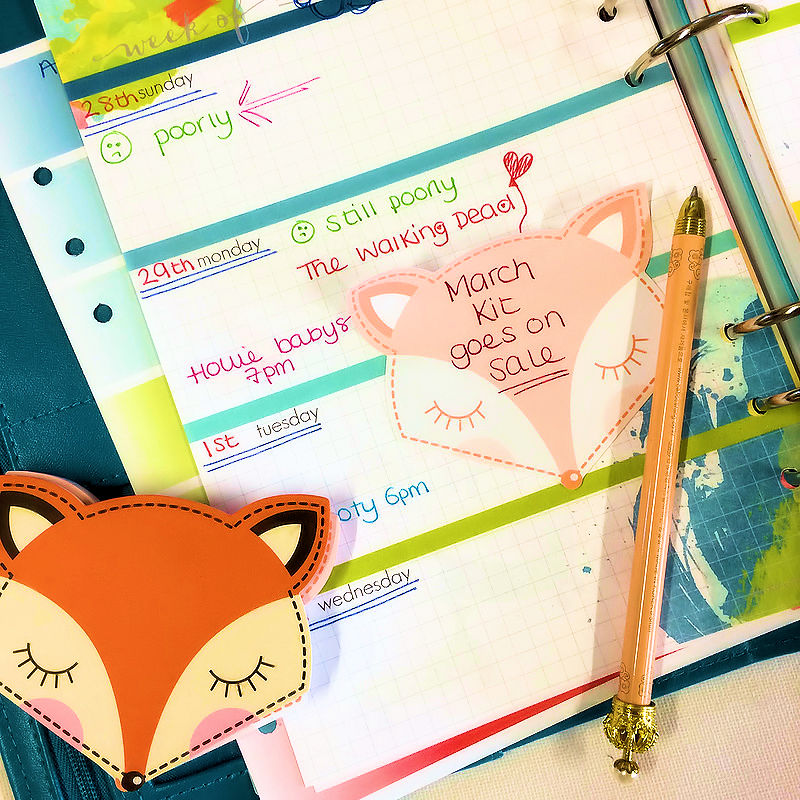 week of
28th sunday
poorly
still poorly
The Walking Dead
29th monday
March
Kit
goes on
Sale
Howie babys
7pm
1st tuesday
oty 6pm
wednesday